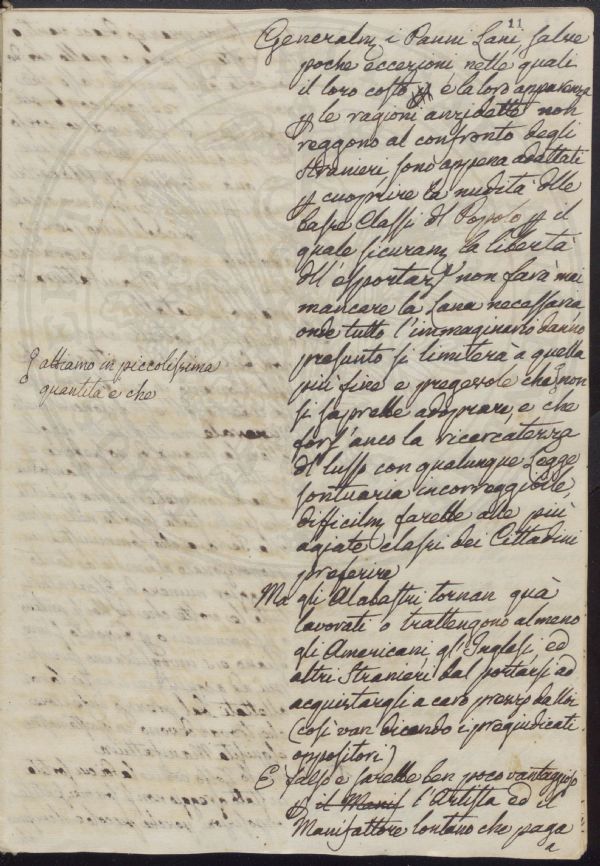 11
Generalm. i Panni Lani, salve
poche eccezioni nelle quali
il loro costo e la loro apparenza
p le ragioni anzidette non
reggono al confronto degli
Stranieri sono appena adattati
p cuoprire la nudità delle
basse Classi del Popolo p il
quale sicuram. la libertà
dell'esportaz. non farà mai
mancare la Lana necessaria
onde tutto l'immaginario danno
presunto si limiterà a quella
più fine e pregevole che non
abbiamo in piccolissima
quantità e che
si saprebbe adoprare, e che
fors'anco la ricercatezza
del lusso con qualunque Legge
sontuaria incorreggibile,
difficilm. farebbe alle più
agiate classi dei Cittadini
preferire
Ma gli Alabastri tornan quà
lavorati o trattengono almeno
gli Americani, gl'Inglesi ed
altri Stranieri dal portarsi ad
acquistargli a caro prezzo da Noi
(così van dicendo i pregiudicati
oppositori)
È falso e sarebbe ben poco vantaggioso
p il Manif l'Artista ed il
Manifattore lontano che paga
a